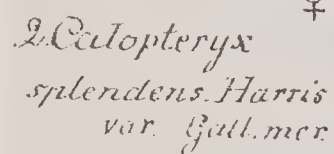 ♀
2. Calopteryx
splendens. Harris
var. Gall. mer.